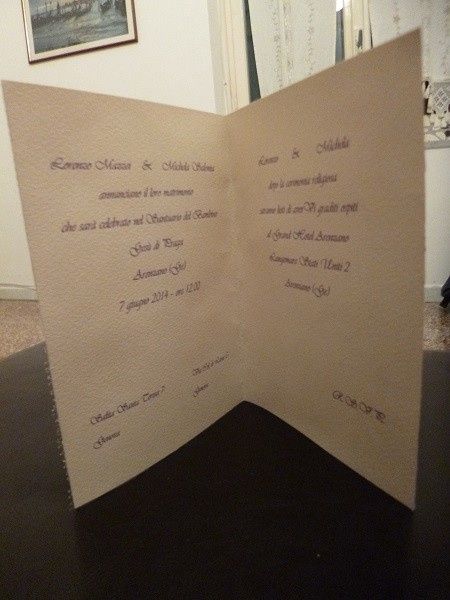 Lorenzo Mazzei & Michela Salonia
annunciano il loro matrimonio
che sarà celebrato nel Santuario del Bambino
Gesù di Praga
Arenzano (Ge)
7 giugno 2014 - ore 12.00
Salita Santa Teresa 7
Genova
Via
Genova
Lorenzo & Michela
dopo la cerimonia religiosa
saranno lieti di averVi graditi ospiti
al Grand Hotel Arenzano
Lungomare Stati Uniti 2
Arenzano (Ge)
R.S.V.P.